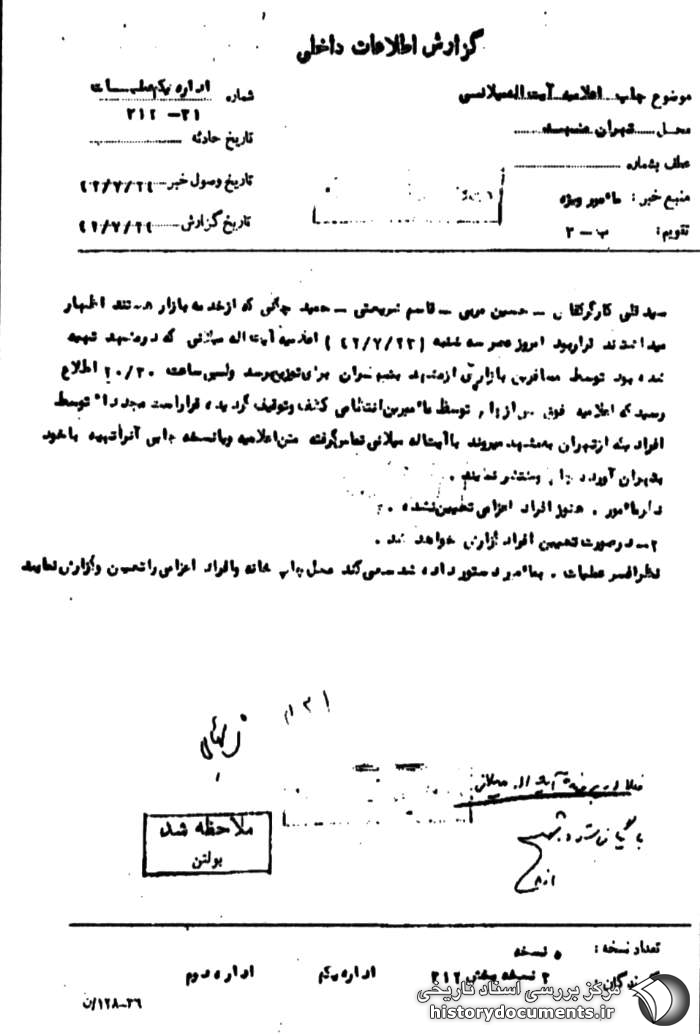 گزارش اطلاعات داخلی
موضوع چاپ اعلامیه آیت اله میلانی
محل تهران مشهد
عطف بشماره
منبع خبر : مأمور ویژه
تقویم : ب – ۲
شماره اداره یکم عملیات
۲۱– ۲۱۲
تاریخ حادثه
تاریخ وصول خبر ۴۲/۷/۲۴
تاریخ گزارش ۴۲/۷/۲۴
سید تقی – حسین – قاسم – حمید که از بازار هستند اظهار
میداشتند قرار بود امروز عصر سه شنبه (۴۲/۷/۲۳) اعلامیه آیت اله میلانی که در مشهد تهیه
شده بود توسط مسافرین بازاری از مشهد به تهران برای توزیع برسد ولی ساعت ۲۰/۳۰ اطلاع
رسید که اعلامیه فوق توسط مأمورین انتظامی کشف و توقیف گردیده، قرار است مجدداً توسط
افرادیکه از تهران به مشهد میروند با آیت اله میلانی تماس گرفته متن اعلامیه و یا نسخه چاپی آنرا تهیه با خود
بتهران آورده و منتشر نمایند .
مأمور . هنوز افراد اعزامی تعیین نشده .
۲– در صورت تعیین افراد گزارش خواهد شد .
نظر افسر عملیات . بمأمور دستور داده شد سعی کند محل چاپ خانه و افراد اعزامی را تعیین و گزارش نمایند
۱۲۱
آیت اله میلانی
ملاحظه شد
بولتن
تعداد نسخه : ۵ نسخه
گیرندگان : ۲ نسخه بخش ۲۱۲ اداره یکم اداره دوم
۲۶–۱۲۸/ن
مرکز بررسی اسناد تاریخی
historydocuments.ir